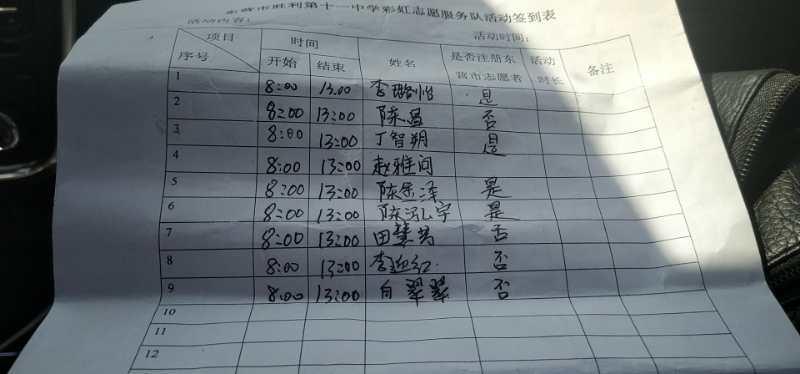 东营市胜利第十一中学彩虹志愿服务队活动签到表
活动内容: 活动时间:
项目 时间 姓名 是否注册东 活动 备注
序号 开始 结束 营市志愿者 时长
1 8:00 13:00 李璐怡 是
2 8:00 13:00 陈昌 否
3 8:00 13:00 丁智朔 是
4 8:00 13:00 赵雅闻
5 8:00 13:00 陈显泽 是
6 8:00 13:00 陈泓宇 是
7 8:00 13:00 田 否
8 8:00 13:00 李迎红 否
9 8:00 13:00 白翠翠 否
10
11
12